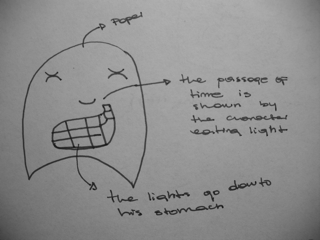 Paper
the passage of
time is
shown by
the character
eating light
the lights go down to
his stomach